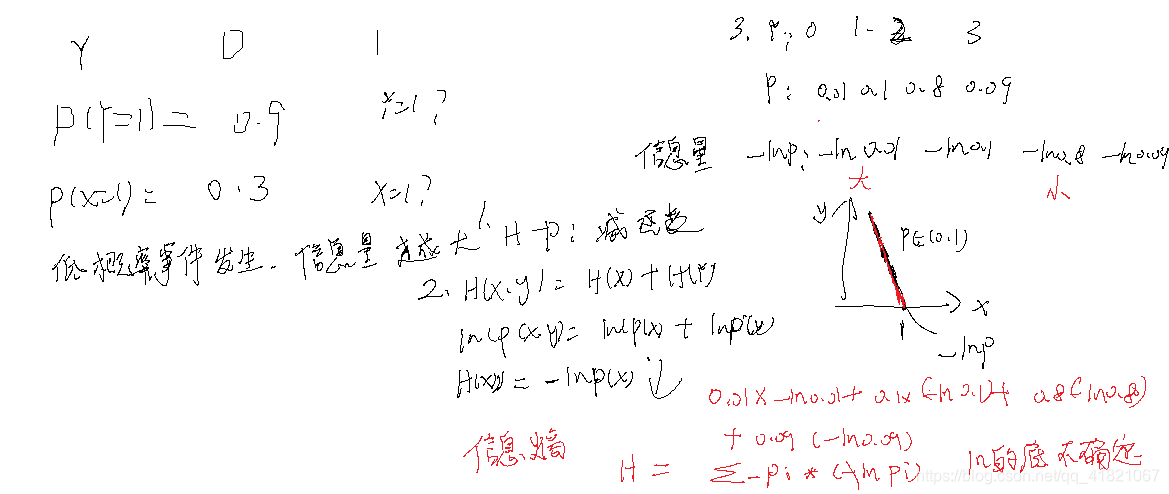 Y 0 1
P(Y=1) = 0.9 Y=1?
P(X=1) = 0.3 X=1?
低概率事件发生. 信息量越大
1. H-P: 减函数
2. H(x,y) = H(x) + H(y)
ln(p(x,y) = ln(p(x) + lnp(y)
H(x) = -lnp(x) ↓
3. Y: 0 1 2 3
P: 0.01 0.1 0.8 0.09
信息量 -lnp: -ln0.01 -ln0.1 -ln0.8 -ln0.09
大 小
y
P∈(0,1)
x
1
-lnp
0.01x -ln0.01 + 0.1x (-ln0.1) + 0.8(-ln0.8)
+ 0.09 (-ln0.09)
信息熵 H = Σ-pi * (-ln pi) ln的底不确定
https://blog.csdn.net/qq_41821067